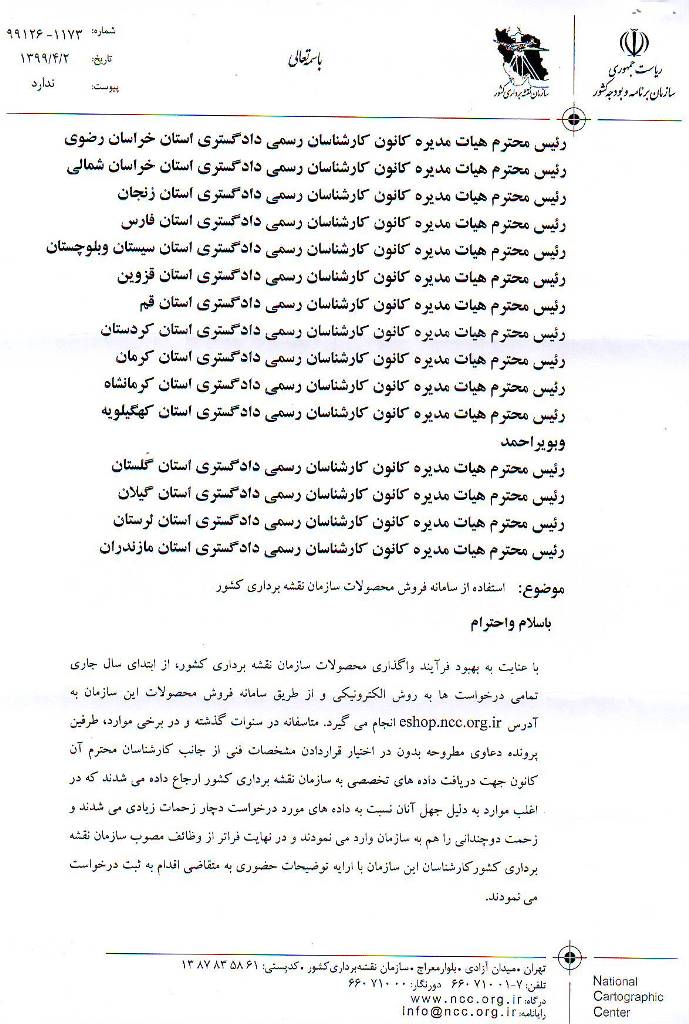 ریاست جمهوری
سازمان برنامه و بودجه کشور
سازمان نقشه برداری کشور
باسمه تعالی
شماره: ۹۹۱۲۶-۱۱۷۳
تاریخ: ۱۳۹۹/۴/۲
پیوست: ندارد
رئیس محترم هیات مدیره کانون کارشناسان رسمی دادگستری استان خراسان رضوی
رئیس محترم هیات مدیره کانون کارشناسان رسمی دادگستری استان خراسان شمالی
رئیس محترم هیات مدیره کانون کارشناسان رسمی دادگستری استان زنجان
رئیس محترم هیات مدیره کانون کارشناسان رسمی دادگستری استان فارس
رئیس محترم هیات مدیره کانون کارشناسان رسمی دادگستری استان سیستان وبلوچستان
رئیس محترم هیات مدیره کانون کارشناسان رسمی دادگستری استان قزوین
رئیس محترم هیات مدیره کانون کارشناسان رسمی دادگستری استان قم
رئیس محترم هیات مدیره کانون کارشناسان رسمی دادگستری استان کردستان
رئیس محترم هیات مدیره کانون کارشناسان رسمی دادگستری استان کرمان
رئیس محترم هیات مدیره کانون کارشناسان رسمی دادگستری استان کرمانشاه
رئیس محترم هیات مدیره کانون کارشناسان رسمی دادگستری استان کهگیلویه
وبویراحمد
رئیس محترم هیات مدیره کانون کارشناسان رسمی دادگستری استان گلستان
رئیس محترم هیات مدیره کانون کارشناسان رسمی دادگستری استان گیلان
رئیس محترم هیات مدیره کانون کارشناسان رسمی دادگستری استان لرستان
رئیس محترم هیات مدیره کانون کارشناسان رسمی دادگستری استان مازندران
موضوع: استفاده از سامانه فروش محصولات سازمان نقشه برداری کشور
باسلام واحترام
با عنایت به بهبود فرآیند واگذاری محصولات سازمان نقشه برداری کشور، از ابتدای سال جاری
تمامی درخواست ها به روش الکترونیکی و از طریق سامانه فروش محصولات این سازمان به
آدرس eshop.ncc.org.ir انجام می گیرد. متاسفانه در سنوات گذشته و در برخی موارد، طرفین
پرونده دعاوی مطروحه بدون در اختیار قراردادن مشخصات فنی از جانب کارشناسان محترم آن
کانون جهت دریافت داده های تخصصی به سازمان نقشه برداری کشور ارجاع داده می شدند که در
اغلب موارد به دلیل جهل آنان نسبت به داده های مورد درخواست دچار زحمات زیادی می شدند و
زحمت دوچندانی را هم به سازمان وارد می نمودند و در نهایت فراتر از وظائف مصوب سازمان نقشه
برداری کشورکارشناسان این سازمان با ارایه توضیحات حضوری به متقاضی اقدام به ثبت درخواست
می نمودند.
تهران، میدان آزادی، بلوار معراج، سازمان نقشه‌برداری کشور، کدپستی: ۱۳ ۸۷ ۸۳ ۵۸ ۶۱
تلفن: ۷-۰۱ ۷۱۰ ۶۶۰ دورنگار: ۰۰ ۷۱۰ ۶۶۰
درگاه: www.ncc.org.ir
رایانامه: info@ncc.org.ir
National
Cartographic
Center